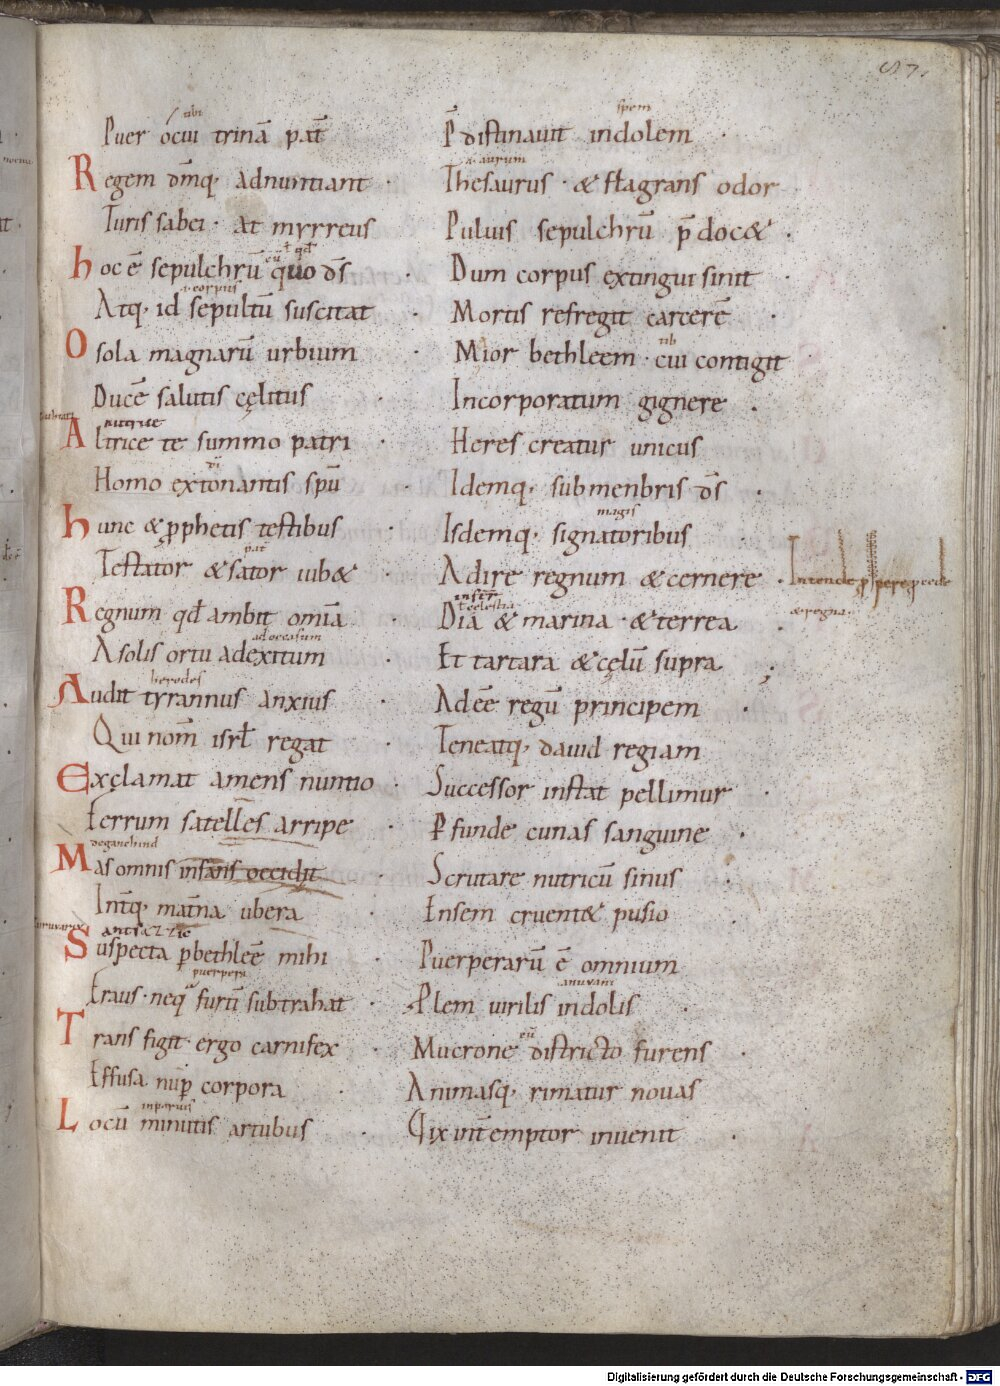 87.
tibi spem
Puer ó cui trinā pat̄ P̄distinauit indolem
.i. aurum
Regem dn̄iq; adnuntiant Thesaurus · & flagrans odor
Turis sabei · at myrreus Puluis sepulchrū p̄doc&
eū ł qd̄
hoc ē sepulchrū quo dš Dum corpus extingui sinit
.i. corpus
Atq; id sepultū suscitat Mortis refregit carcerē
O sola magnarū urbium Mior bethleem · cui contigit
tib
Ducē salutis cęlitus Incorporatum gignere
nutrice
Altrice te summo patri Heres creatus unicus
Homo extonantis spū Idemq; sub menbris dš
magis
hunc & p̱phetis testibus Isdemq; signatoribus
pat̄
Testator & sator iub& Adire regnum & cernere
Intende p̱spere p̱cede
& regna
ł cęlestia
Regnum qd̄ ambit om̄ia Diā & marina · & terrea
ad occasum
A solis ortu ad exitum Et tartara & cęlū supra
herodes
Audit tyrannus anxius Adeē regū principem
Qui nom̄ isrł regat Teneatq; dauid regiam
Exclamat amens nuntio Successor instat pellimur
Ferrum satelles arripe P̱funde cunas sanguine
deganchind
Mas omnis insans occidit Scrutare nutricū sinus
Int̄q; mat̄na ubera Ensem cruent& pusio
Suspecta p̱ bethleē mihi Puerperarū ē omnium
puerpera
Fraus · neq̄ furtū subtrahat Plem uirilis indolis
eū
Transfigit ergo carnifex Mucrone districto furens
Effusa nup̱ corpora Animasq; rimatur nouas
inparuis
Locū minutis artubus Qix int̄emptor inuenit
Digitalisierung gefördert durch die Deutsche Forschungsgemeinschaft - DFG